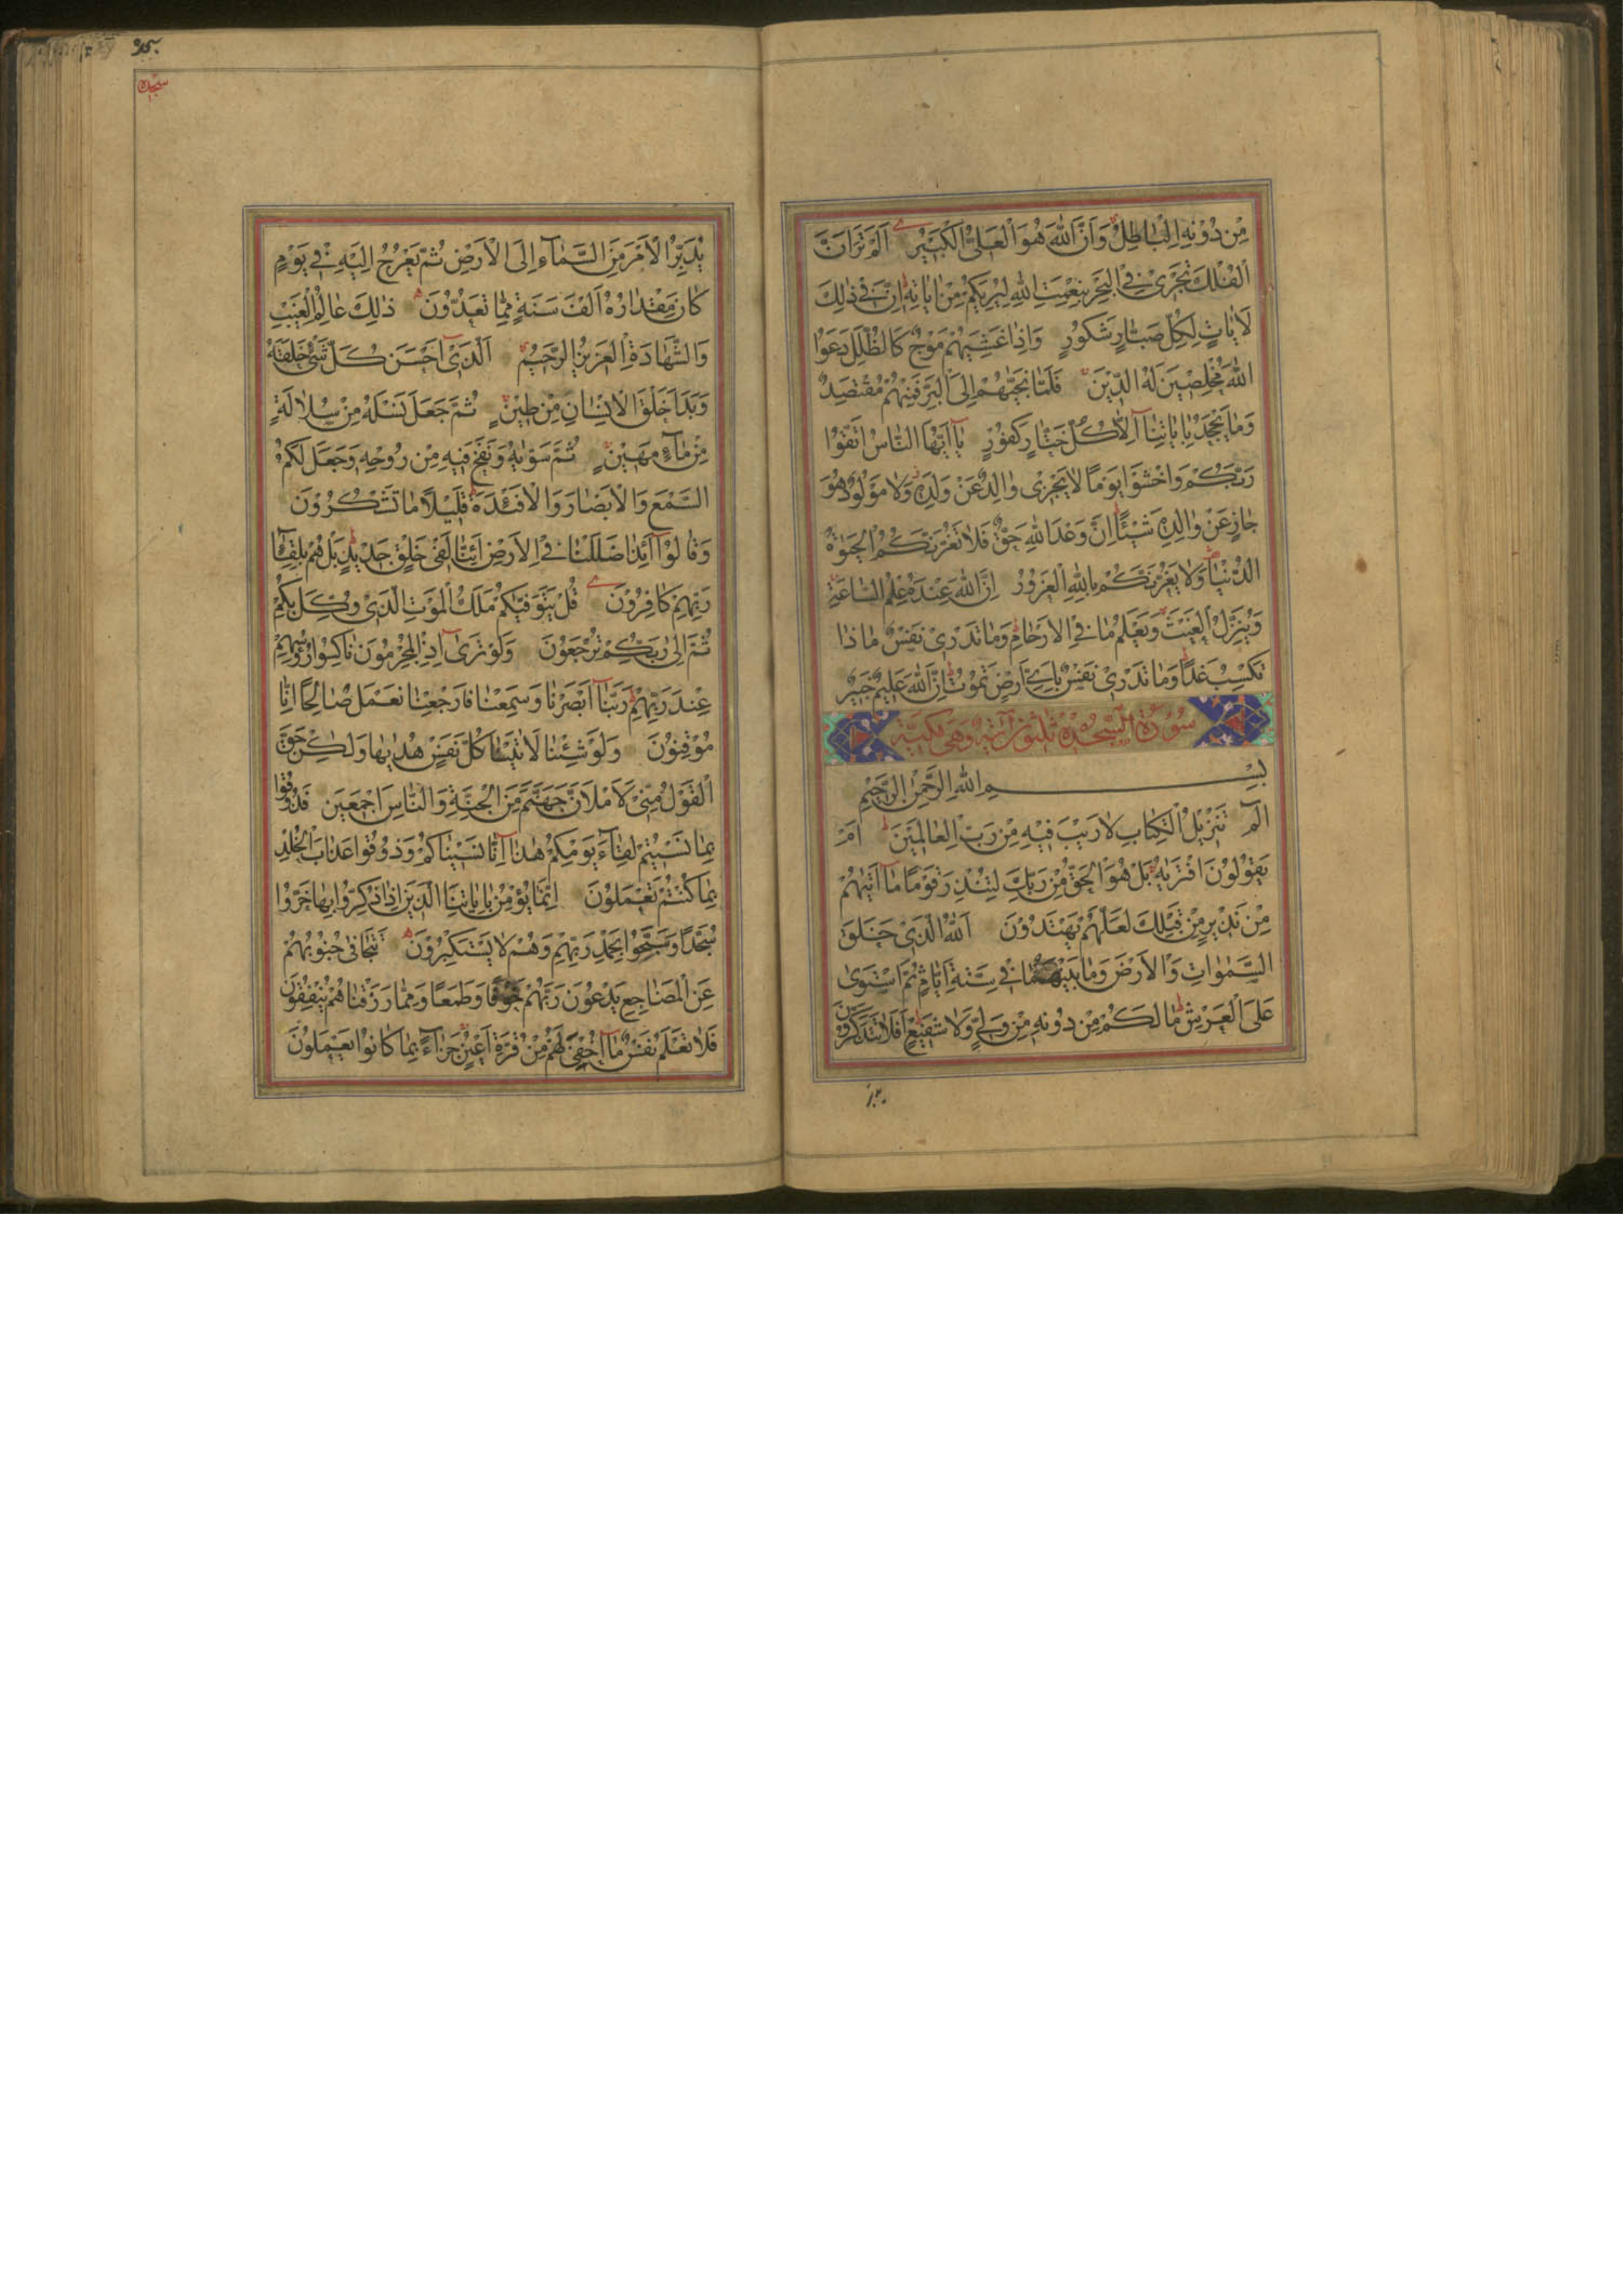 مِنْ دُوْنِهِ الْبَاطِلُ وَاَنَّ اللّٰهَ هُوَ الْعَلِىُّ الْكَبِيْرُ اَلَمْ تَرَ اَنَّ
الْفُلْكَ تَجْرِىْ فِى الْبَحْرِ بِنِعْمَتِ اللّٰهِ لِيُرِيَكُمْ مِنْ اٰيَاتِهٖ اِنَّ فِىْ ذٰلِكَ
لَاٰيَاتٍ لِكُلِّ صَبَّارٍ شَكُوْرٍ وَاِذَا غَشِيَهُمْ مَوْجٌ كَالظُّلَلِ دَعَوُا
اللّٰهَ مُخْلِصِيْنَ لَهُ الدِّيْنَ فَلَمَّا نَجّٰيهُمْ اِلَى الْبَرِّ فَمِنْهُمْ مُقْتَصِدٌ
وَمَا يَجْحَدُ بِاٰيَاتِنَا اِلَّا كُلُّ خَتَّارٍ كَفُوْرٍ يَا اَيُّهَا النَّاسُ اتَّقُوْا
رَبَّكُمْ وَاخْشَوْا يَوْمًا لَا يَجْزِىْ وَالِدٌ عَنْ وَلَدِهٖ وَلَا مَوْلُوْدٌ هُوَ
جَازٍ عَنْ وَالِدِهٖ شَيْئًا اِنَّ وَعْدَ اللّٰهِ حَقٌّ فَلَا تَغُرَّنَّكُمُ الْحَيٰوةُ
الدُّنْيَا وَلَا يَغُرَّنَّكُمْ بِاللّٰهِ الْغَرُوْرُ اِنَّ اللّٰهَ عِنْدَهٗ عِلْمُ السَّاعَةِ
وَيُنَزِّلُ الْغَيْثَ وَيَعْلَمُ مَا فِى الْاَرْحَامِ وَمَا تَدْرِىْ نَفْسٌ مَاذَا
تَكْسِبُ غَدًا وَمَا تَدْرِىْ نَفْسٌ بِاَىِّ اَرْضٍ تَمُوْتُ اِنَّ اللّٰهَ عَلِيْمٌ خَبِيْرٌ
سُوْرَةُ السَّجْدَةِ ثَلٰثُوْنَ اٰيَةً وَهِىَ مَكِّيَّةٌ
بِسْمِ اللّٰهِ الرَّحْمٰنِ الرَّحِيْمِ
الٓمٓ تَنْزِيْلُ الْكِتَابِ لَا رَيْبَ فِيْهِ مِنْ رَبِّ الْعَالَمِيْنَ اَمْ
يَقُوْلُوْنَ افْتَرٰيهُ بَلْ هُوَ الْحَقُّ مِنْ رَبِّكَ لِتُنْذِرَ قَوْمًا مَا اَتٰيهُمْ
مِنْ نَذِيْرٍ مِنْ قَبْلِكَ لَعَلَّهُمْ يَهْتَدُوْنَ اَللّٰهُ الَّذِىْ خَلَقَ
السَّمٰوَاتِ وَالْاَرْضَ وَمَا بَيْنَهُمَا فِىْ سِتَّةِ اَيَّامٍ ثُمَّ اسْتَوٰى
عَلَى الْعَرْشِ مَا لَكُمْ مِنْ دُوْنِهٖ مِنْ وَلِىٍّ وَلَا شَفِيْعٍ اَفَلَا تَتَذَكَّرُوْنَ
سجده
يُدَبِّرُ الْاَمْرَ مِنَ السَّمَآءِ اِلَى الْاَرْضِ ثُمَّ يَعْرُجُ اِلَيْهِ فِىْ يَوْمٍ
كَانَ مِقْدَارُهٗ اَلْفَ سَنَةٍ مِمَّا تَعُدُّوْنَ ذٰلِكَ عَالِمُ الْغَيْبِ
وَالشَّهَادَةِ الْعَزِيْزُ الرَّحِيْمُ اَلَّذِىْ اَحْسَنَ كُلَّ شَىْءٍ خَلَقَهٗ
وَبَدَاَ خَلْقَ الْاِنْسَانِ مِنْ طِيْنٍ ثُمَّ جَعَلَ نَسْلَهٗ مِنْ سُلَالَةٍ
مِنْ مَآءٍ مَهِيْنٍ ثُمَّ سَوّٰيهُ وَنَفَخَ فِيْهِ مِنْ رُوْحِهٖ وَجَعَلَ لَكُمُ
السَّمْعَ وَالْاَبْصَارَ وَالْاَفْئِدَةَ قَلِيْلًا مَا تَشْكُرُوْنَ
وَقَالُوْا اَئِذَا ضَلَلْنَا فِى الْاَرْضِ اَئِنَّا لَفِىْ خَلْقٍ جَدِيْدٍ بَلْ هُمْ بِلِقَآءِ
رَبِّهِمْ كَافِرُوْنَ قُلْ يَتَوَفّٰيكُمْ مَلَكُ الْمَوْتِ الَّذِىْ وُكِّلَ بِكُمْ
ثُمَّ اِلٰى رَبِّكُمْ تُرْجَعُوْنَ وَلَوْ تَرٰى اِذِ الْمُجْرِمُوْنَ نَاكِسُوْا رُؤُسِهِمْ
عِنْدَ رَبِّهِمْ رَبَّنَا اَبْصَرْنَا وَسَمِعْنَا فَارْجِعْنَا نَعْمَلْ صَالِحًا اِنَّا
مُوْقِنُوْنَ وَلَوْ شِئْنَا لَاٰتَيْنَا كُلَّ نَفْسٍ هُدٰيهَا وَلٰكِنْ حَقَّ
الْقَوْلُ مِنِّىْ لَاَمْلَاَنَّ جَهَنَّمَ مِنَ الْجِنَّةِ وَالنَّاسِ اَجْمَعِيْنَ فَذُوْقُوْا
بِمَا نَسِيْتُمْ لِقَآءَ يَوْمِكُمْ هٰذَا اِنَّا نَسِيْنَاكُمْ وَذُوْقُوْا عَذَابَ الْخُلْدِ
بِمَا كُنْتُمْ تَعْمَلُوْنَ اِنَّمَا يُؤْمِنُ بِاٰيَاتِنَا الَّذِيْنَ اِذَا ذُكِّرُوْا بِهَا خَرُّوْا
سُجَّدًا وَسَبَّحُوْا بِحَمْدِ رَبِّهِمْ وَهُمْ لَا يَسْتَكْبِرُوْنَ تَتَجَافٰى جُنُوْبُهُمْ
عَنِ الْمَضَاجِعِ يَدْعُوْنَ رَبَّهُمْ خَوْفًا وَطَمَعًا وَمِمَّا رَزَقْنَاهُمْ يُنْفِقُوْنَ
فَلَا تَعْلَمُ نَفْسٌ مَا اُخْفِىَ لَهُمْ مِنْ قُرَّةِ اَعْيُنٍ جَزَآءً بِمَا كَانُوْا يَعْمَلُوْنَ